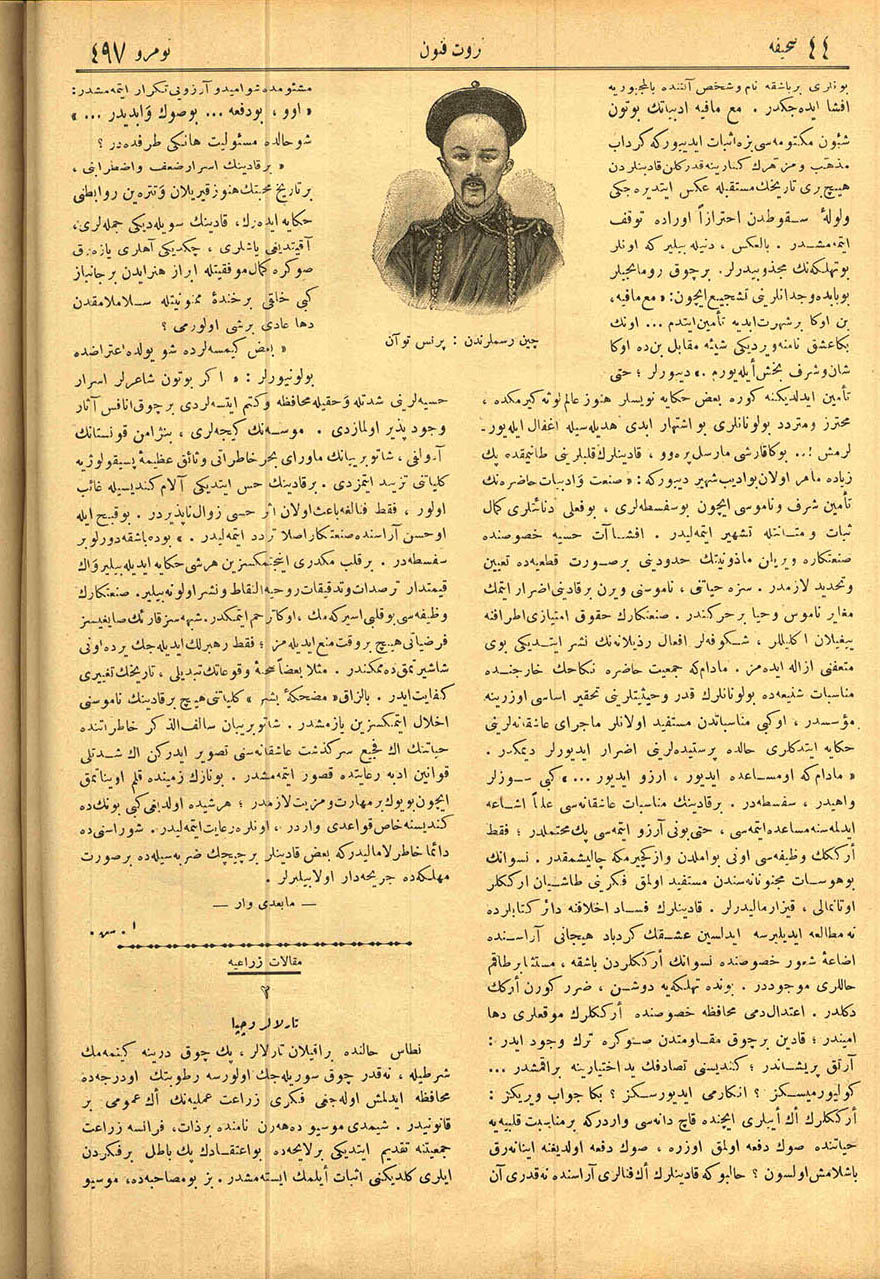 ٤٤ صحیفه
ثروت فنون
نومرو ٤٩٧
بونلری برباشقه نام وشخص آلتنده بالمجبوریه
افشا ایده‌جکدر . مع مافیه ادبیاتك بوتون
شئون مکتومه‌سی بزه اثبات ایدییورکه کرداب
مذهب ومزهرك کنارینه قدر کلن قادینلردن
هیچ بری تاریخك مستقبله عکس ایتدیره‌جکی
ولولهٔ سقوطدن احترازاً اوراده توقف
ایتمه‌مشدر . بالعکس ، دنیله بیلیرکه اونلر
بوتهلکه‌نك مجذوبیدرلر. برچوق رومانجیلر
بوبابده وجدانلرینی تشجیع ایچون: « مع مافیه،
بن اوکا برشهرت ابدیه تأمین ایتدم ... اونك
بکا عشق نامنه ویردیکی شیئه مقابل بن ده اوکا
شان وشرف بخش أیله‌یورم .» دییورلر ؛ حتی
تأمین ایدلدیکنه کوره بعض حکایه نویسلر هنوز عالم لوثه کیرمکده ،
محترز ومتردد بولونانلری بو اشتهار ابدی هدیه‌سیله اغفال ایله‌یور-
لرمش !.. بوکا قارشی مارسل پره‌وو ، قادینلرك قلبلرینی طانیمقده پك
زیاده ماهر اولان بوادیب شهیر دییورکه: « صنعت وادبیات حاضره‌نك
تأمین شرف وناموسی ایچون بوسفسطه‌لری ، بوفعلی دنائتلری کمال
ثبات ومتانتله تشهیر ایتمه‌لیدر . افشاآت حسیه خصوصنده
صنعتکاره ویریلن مأذونیتك حدودینی برصورت قطعیه‌ده تعیین
وتحدید لازمدر. سزه حیاتنی ، ناموسنی ویرن برقادینی اضرار ایتمك
مغایر ناموس وحیا برحرکتدر. صنعتکارك حقوق امتیازی اطرافنه
ییغیلان اکلیللر ، شکوفه‌لر افعال رذیلانه‌نك نشر ایتدیکی بوی
متعفنی ازاله ایده‌مز . مادام‌که جمعیت حاضره نکاحك خارجنده
مناسبات شنیعه‌ده بولونانلرك قدر وحیثیتلرینی تحقیر اساسی اوزرینه
مؤسسدر ، اوکبی مناسباتدن مستفید اولانلر ماجرای عاشقانه‌لرینی
حکایه ایتدکلری حالده پرستیده‌لرینی اضرار ایدیورلر دیمکدر .
« مادام که اومساعده ایدیور ، ارزو ایدیور ...» کبی سوزلر
واهیدر ، سفسطه‌در . برقادینك مناسبات عاشقانه‌سی علناً اشاعه
ایدلمه‌سنه مساعده ایتمه‌سی ، حتی بونی آرزو ایتمه‌سی پك محتملدر ؛ فقط
أرککك وظیفه‌سی اونی بواملدن وازکچیرمکه چالیشمقدر . نسوانك
بوهوسات مجنونانه‌سندن مستفید اولمق فکرینی طاشییان ارککلر
اوتانمالی ، قیزارمالیدرلر . قادینلرك فساد اخلاقنه دائر کتابلرده
نه مطالعه ایدیلیرسه ایدلسین عشقك کردباد هیجانی آراسنده
اضاعهٔ شعور خصوصنده نسوانك أرککلردن باشقه ، مستثنا برطاقم
حاللری موجوددر . بونده تهلکه‌یه دوشن ، ضرر کورن أرکك
دکلدر . اعتدال دمی محافظه خصوصنده أرککلرك موقعلری دها
امیندر ؛ قادین برچوق مقاومتدن صوکره ترك وجود ایدر :
آرتق پریشاندر ؛ کندیسنی تصادفك ید اختیارینه براقمشدر ...
کولیورمیسکز ؟ انکارمی ایدیورسکز ؟ بکا جواب ویریکز :
أرککلرك أك أییلری ایچنده قاچ دانه‌سی واردرکه برمناسبت قلبیه‌یه
حیاتنده صوك دفعه اولمق اوزره ، صوك دفعه اولدیغنه اینانه‌رق
باشلامش اولسون ؟ حالبوکه قادینلرك أك فنالری آراسنده نه‌قدری آن
چین رسملرندن : پرنس توآن
مشئومده شو امید و آرزویی تکرار ایتمه‌مشدر:
« اوو ، بودفعه ... بوصوك وَ ابدیدر ... »
شوحالده مسئولیت هانکی طرفده‌در ؟
« برقادینك اسرار ضعف واضطرابنی ،
برتاریخ محبتك هنوز قیریلان وتتره‌ین روابطنی
حکایه ایده‌رك، قادینك سویله‌دیکی جمله‌لری،
آقیتدیغی یاشلری ، چکدیکی آهلری یازه‌رق
صوکره کمال موفقیتله ابراز هنر ایدن برجانباز
کبی خلقی برخندهٔ ممنونیتله سلاملامقدن
دها عادی برشی اولورمی ؟
« بعض کیمسه‌لرده شو یولده اعتراضده
بولونیورلر : « اکر بوتون شاعرلر اسرار
حسیه‌لرینی شدتله وَ حقیله محافظه وکتم ایتسه‌لردی برچوق انافس آثار
وجود پذیر اولمازدی . موسه‌نك کیجه‌لری ، بنژامن قونستانك
آدولفی ، شاتوبریانك ماورای بحر خاطراتی وثائق عظیمهٔ پسیقولوژیه
کلیاتنی تزیید ایتمزدی . برقادینك حس ایتدیکی آلام کندیسیله غائب
اولور ، فقط فنالغه باعث اولان اثر حسی زوال ناپذیردر . بوقبیح ایله
اوحسن آراسنده صنعتکار اصلا تردد ایتمه‌لیدر . » بوده باشقه دورلو بر
سفسطه‌در . برقلب مکدری اینجیتمکسزین هرشی حکایه ایدیله بیلیر وَ اك
قیمتدار ترصدات وتدقیقات روحیه التقاط ونشر اولونه‌بیلیر. صنعتکارك
وظیفه‌سی بوقلبی اسیرکه‌مك ، اوکا ترحم ایتمکدر. شبهه‌سز قارئك صایغیسز
فرضیاتی هیچ بروقت منع ایدیله‌مز ؛ فقط رهبرلك ایدیله‌جك یرده اونی
شاشیرتمق ده ممکندر . مثلا بعضاً صحنهٔ وقوعاتك تبدیلی ، تاریخك تغییری
کفایت ایدر. بالزاق « مضحکهٔ بشر » کلیاتنی هیچ برقادینك ناموسنی
اخلال ایتمکسزین یازمشدر. شاتوبریان سالف الذکر خاطراتنده
حیاتنك اك فجیع سرکذشت عاشقانه‌سنی تصویر ایدرکن اك شدتلی
قوانین ادبه رعایتده قصور ایتمه‌مشدر . بونازك زمینده قلم اویناتمق
ایچون بویوك برمهارت ومزیت لازمدر ؛ هرشیده اولدیغی کبی بونك‌ده
کندیسنه خاص قواعدی واردر ، اونلره رعایت ایتمه‌لیدر. شوراسنی ده
دائما خاطرلامالیدرکه بعض قادینلر برچیچك ضربه‌سیله‌ده برصورت
مهلکه‌ده جریحه‌دار اولابیلیرلر .
— مابعدی وار —
مقالات زراعیه
٢
تارلالر وچپا
نطاس حالنده براقیلان تارلالر ، پك چوق درینه کیتمه‌مك
شرطیله ، نه‌قدر چوق سوریله‌جك اولورسه رطوبتك اودرجه‌ده
محافظه ایدلمش اوله‌جغی فکری زراعت عملیه‌نك أك عمومی بر
قانونیدر . شیمدی موسیو ده‌هه‌رن نامنده برذات، فرانسه زراعت
جمعیتنه تقدیم ایتدیکی برلایحه‌ده بواعتقادك پك باطل برفکردن
ایلری کلدیکنی اثبات أیلمك ایسته‌مشدر. بز بومصاحبه‌ده، موسیو